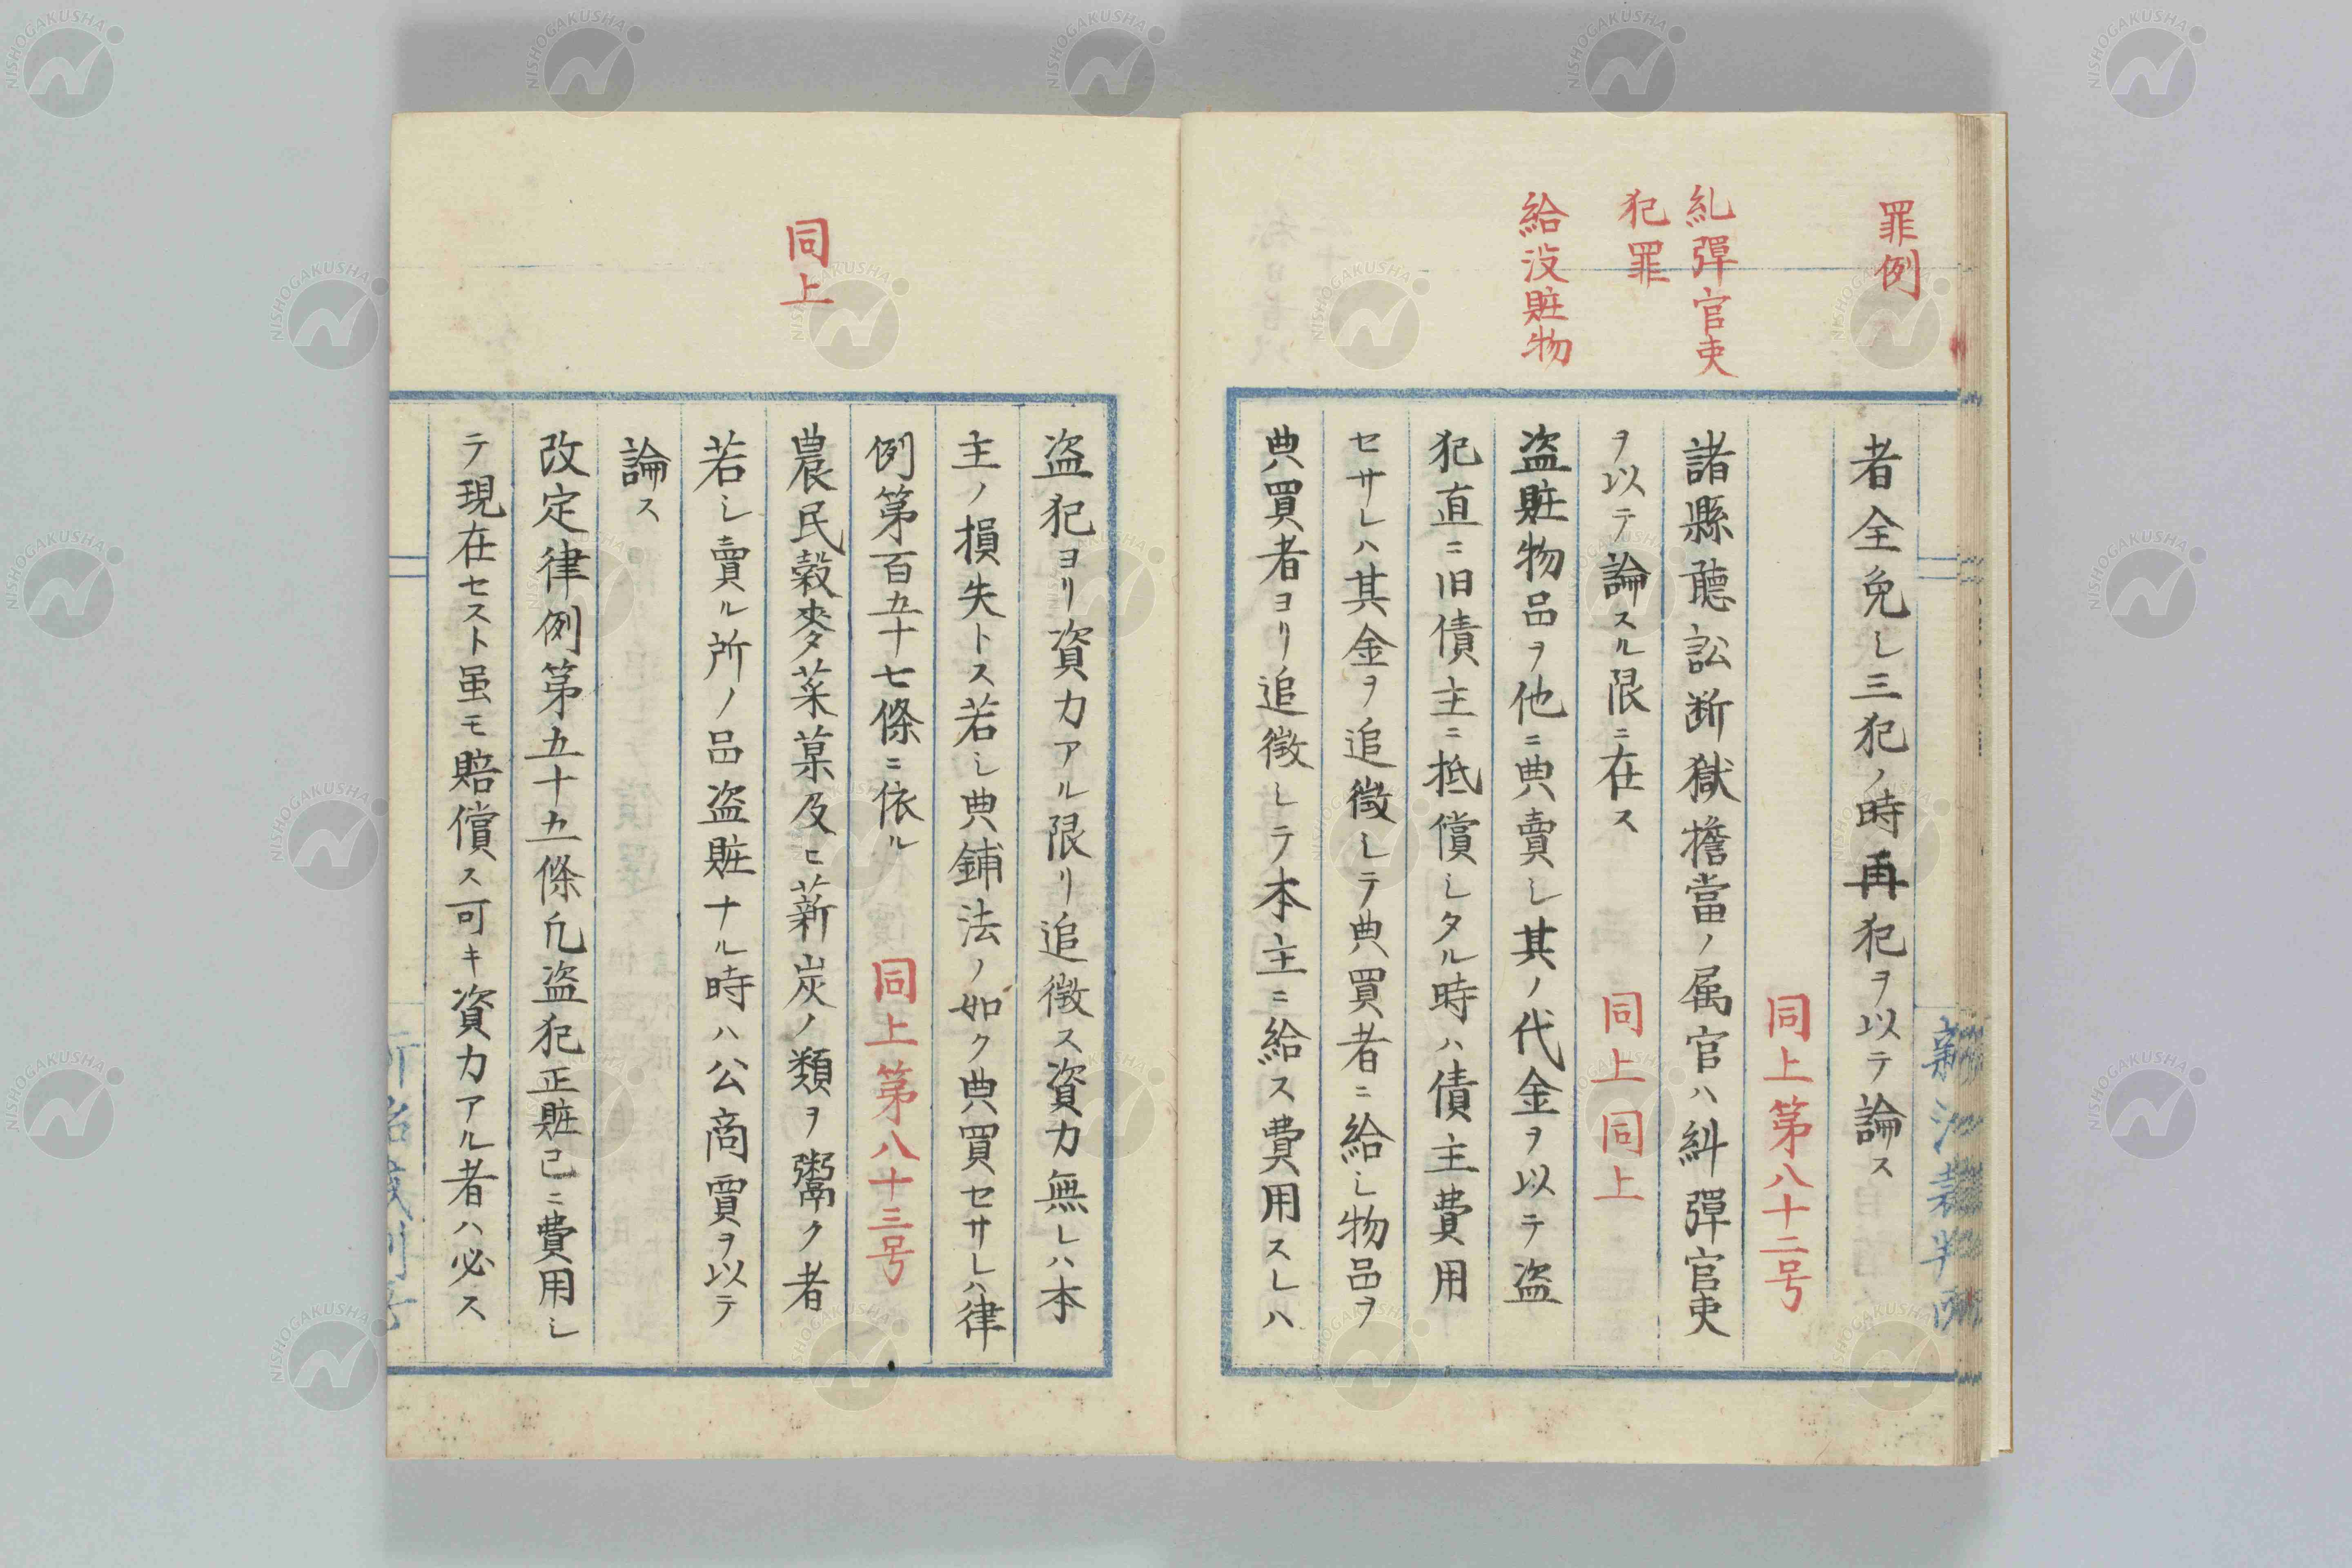 罪例
糺彈官吏
犯罪
給没賍物
者全免シ三犯ノ時再犯ヲ以テ論ス
同上第八十二号
諸縣聽訟断獄擔當ノ属官ハ糾彈官吏
ヲ以テ論スル限ニ在ス 同上同上
盗賍物品ヲ他ニ典賣シ其ノ代金ヲ以テ盗
犯直ニ旧債主ニ抵償シタル時ハ債主費用
セサレハ其金ヲ追徴シテ典買者ニ給シ物品ヲ
典買者ヨリ追徴シテ本主ニ給ス費用スレハ
同上
盗犯ヨリ資力アル限リ追徴ス資力無レハ本
主ノ損失トス若シ典鋪法ノ如ク典買セサレハ律
例第百五十七條ニ依ル 同上第八十三号
農民穀麥菜菓及ヒ薪炭ノ類ヲ鬻ク者
若シ賣ル所ノ品盗賍ナル時ハ公商賈ヲ以テ
論ス
改定律例第五十五條凢盗犯正賍已ニ費用シ
テ現在セスト虽モ賠償ス可キ資力アル者ハ必ス
NISHOGAKUSHA